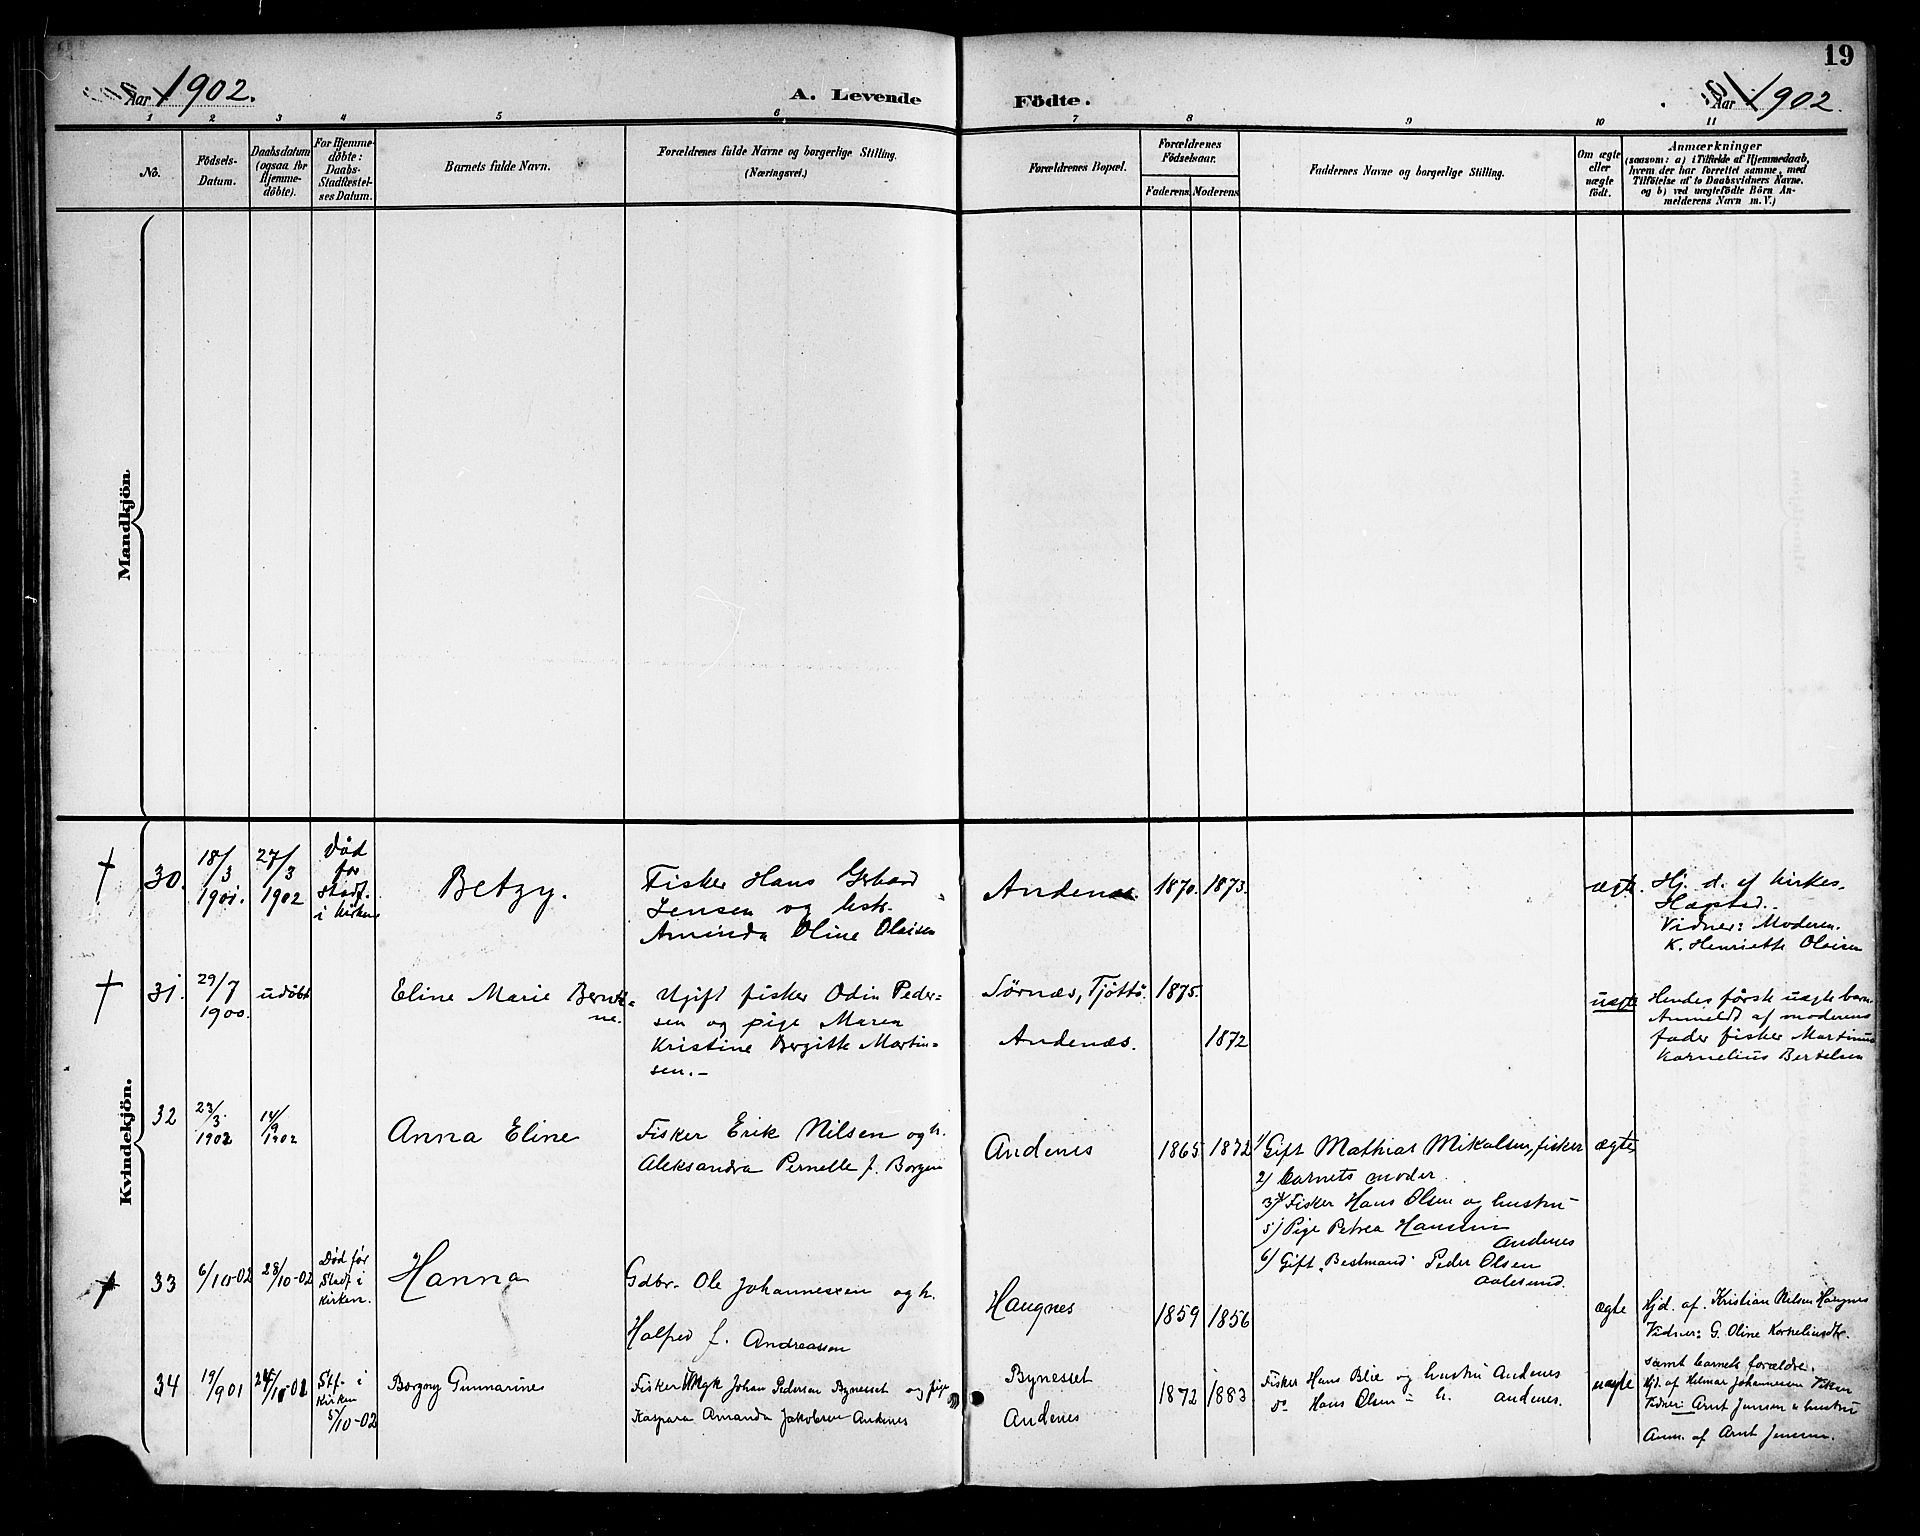 19
Aar 1902.
A. Levende
Födte.
Aar 1902.
1 2 3 4 5 6 7 8 9 10 11
No.
Födsels-
Datum.
Daabsdatum
(ogsaa for
Hjemme-
döbte).
For Hjemme-
döbte:
Daabs-
Stadfæstel-
ses Datum.
Barnets fulde Navn.
Forældrenes fulde Navne og borgerlige Stilling.
(Næringsvei.)
Forældrenes Bopæl.
Forældrenes
Födselsaar.
Faderens. Moderens.
Faddernes Navne og borgerlige Stilling.
Om ægte
eller
uægte
födt.
Anmærkninger
(saasom: a) i Tilfælde af Hjemmedaab,
hvem der har forrettet samme, med
Tilföielse af to Daabsvidners Navne,
og b) ved uægtefödte Börn An-
melderens Navn m. V.)
Mandkjön
Kvindekjön.
30.
18/3
1901.
27/3
1902
Død
før
stadf.
i kirken
Betzy.
Fisker Hans Gerhard
Jensen og hstr.
Aminda Oline Olaisen
Andenæs
1870. 1873.
ægte.
Hj. d. af Kirkes.
Hapstad.
Vidner: Moderen.
K. Henriette Olaisen
31.
29/7
1900.
udöbt
Eline Marie Bernt-
ne.
Ugift fisker Odin Peder-
sen og pige Maren
Kristine Bergitte Martin-
sen.-
Sørnæs, Tjøttö.
Andenæs.
1875.
1872
uægte
Hendes første uægte barn.
Anmeldt af moderens
fader fisker Martinus
Kornelius Bertelsen
32
23/3
1902
14/9
1902
Anna Eline
Fisker Erik Nilsen og h.
Aleksandra Pernelle f. Borgen
Andenes
1865 1872
1/ Gift Mathias Mikalsen, fisker
2/ barnets moder.
3/4 Fisker Hans Olsen og hustru
5/ Pige Petrea Hansen
Andenes
6/ Gift. Bestmand Peder Olsen
Aalesund.
ægte
33
6/10-02
28/10-02
Død før
Stadf. i
Kirken.
Hanna
Gdbr. Ole Johannessen og h.
Halfred f. Andreassen
Haugnes
1859 1856
ægte
Hjd. af. Kristian Nilsen Haugnes
Vidner: G. Oline Korneliusdtr.
samt barnets forældre.
34
19/9 01
Stf. i
Kirken
5/10-02
Borgny Gunnarines
Fisker Ungk Johan Pedersen Bynesset og pige
Kaspara Amanda Jakobsen Andenes
Bynesset
Andenes
1872 1883
Fisker Hans Blie og hustru Andenes
do Hans Olsen - h. Andenes.
uægte
Hjd. af Hilmar Johannesen
Vidner: Arnt Jensen & hustru
Anm. af Arnt Jensen.